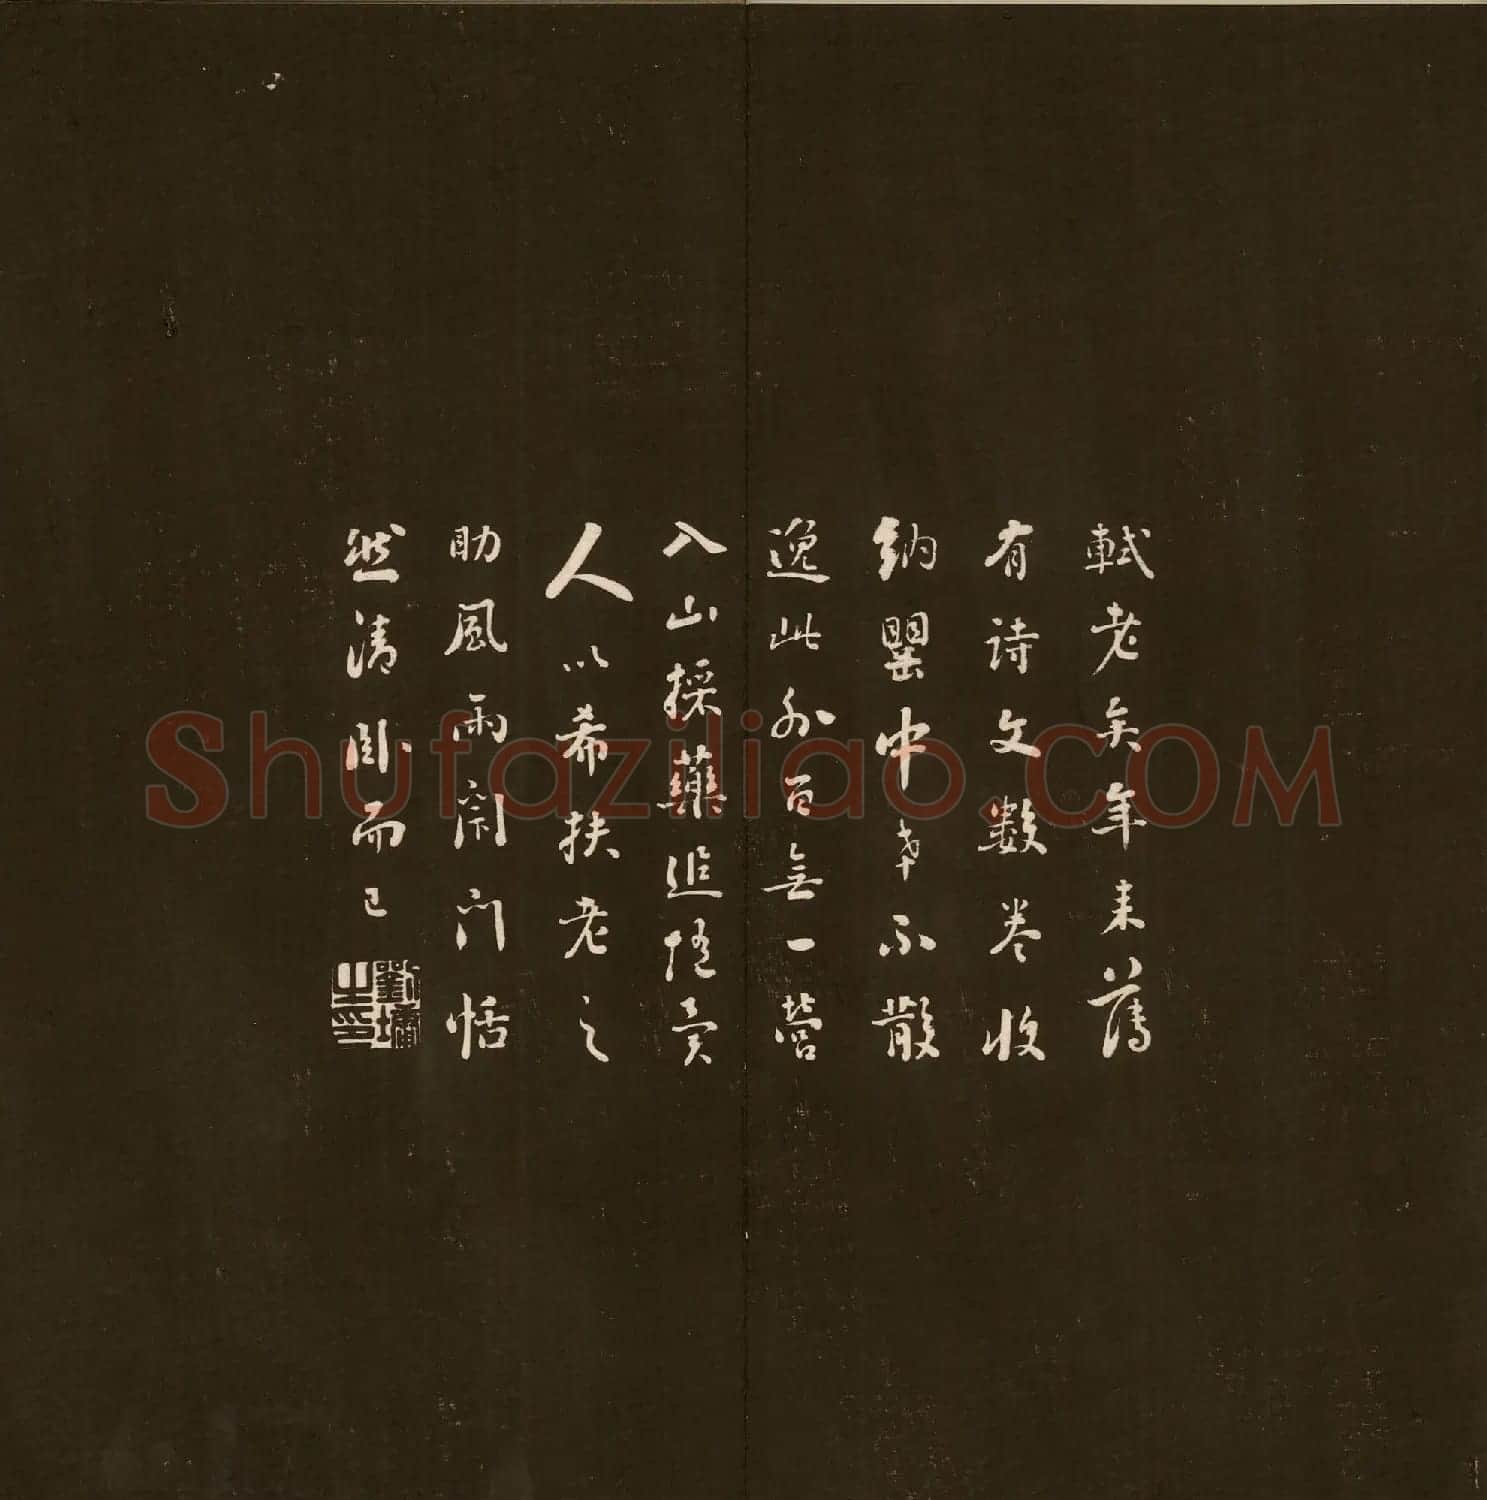 軾老矣年来舊
有詩文數卷收
納甖中幸不散
逸此外百無一營
入山採藥追陪
人以希扶老之
助風雨閉門恬
然清卧而已
劉墉之印
Shufaziliao.COM